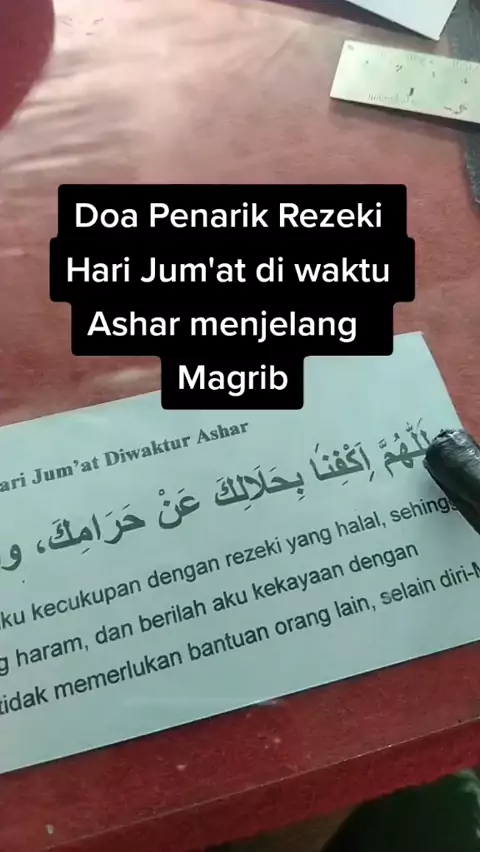 Doa Penarik Rezeki
Hari Jum'at di waktu
Ashar menjelang
Magrib
ari Jum'at Diwaktur Ashar
اَللّٰهُمَّ اَكْفِنَا بِحَلَالِكَ عَنْ حَرَامِكَ، و
ku kecukupan dengan rezeki yang halal, sehingg
g haram, dan berilah aku kekayaan dengan
tidak memerlukan bantuan orang lain, selain diri-M